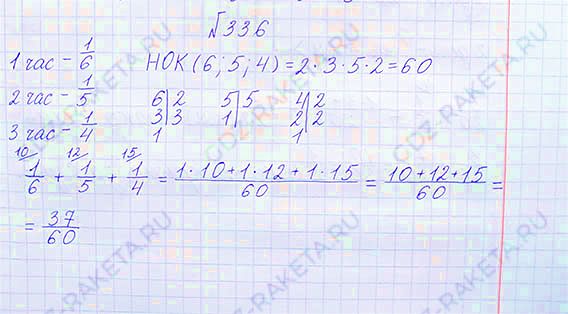 №336
1 час - 1/6 НОК (6; 5; 4) = 2 · 3 · 5 · 2 = 60
2 час - 1/5 6|2 5|5 4|2
3|3 1| 2|2
3 час - 1/4 1 1
10/ 12/ 15/
1/6 + 1/5 + 1/4 = (1 · 10 + 1 · 12 + 1 · 15)/60 = (10 + 12 + 15)/60 =
= 37/60
GDZ-RAKETA.RU